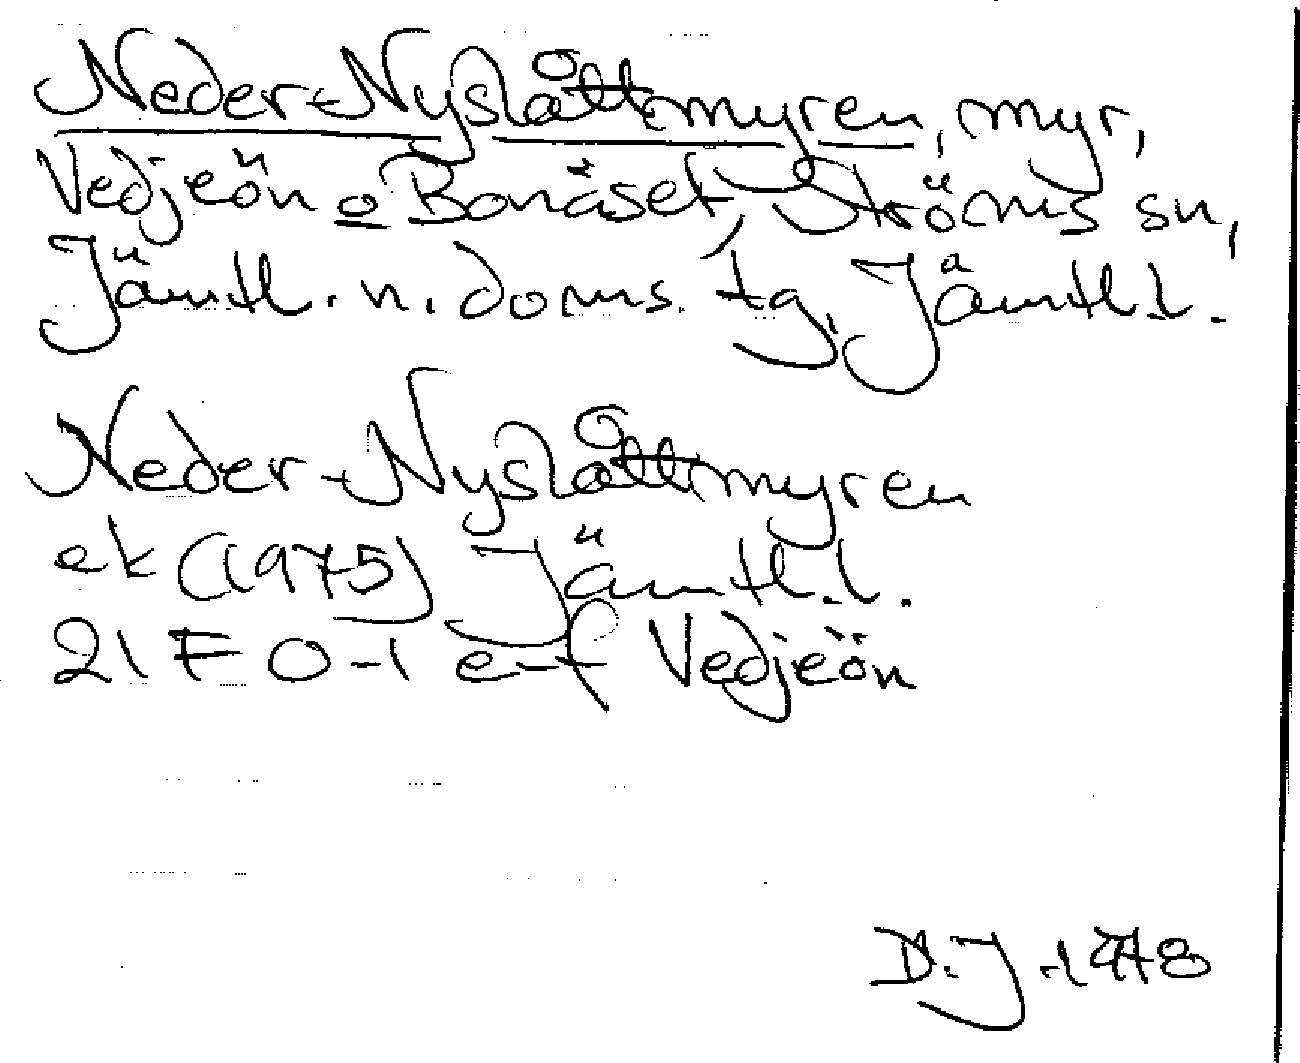 Neder-Nyslåttmyren, myr,
Vedjeön o Bonäset, Ströms sn,
Jämtl. n. doms. tg, Jämtl l.
Neder-Nyslåttmyren
ek (1975) Jämtl. l.
21 F 0-1 e-f Vedjeön
D.J. 1978